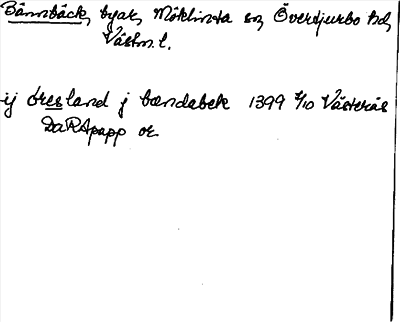 Bännbäck, byar, Möklinta sn, Övertjurbo hd,
Västm. l.
ij öresland j bændabek 1399 2/10 Västerås
DaRApapp or.